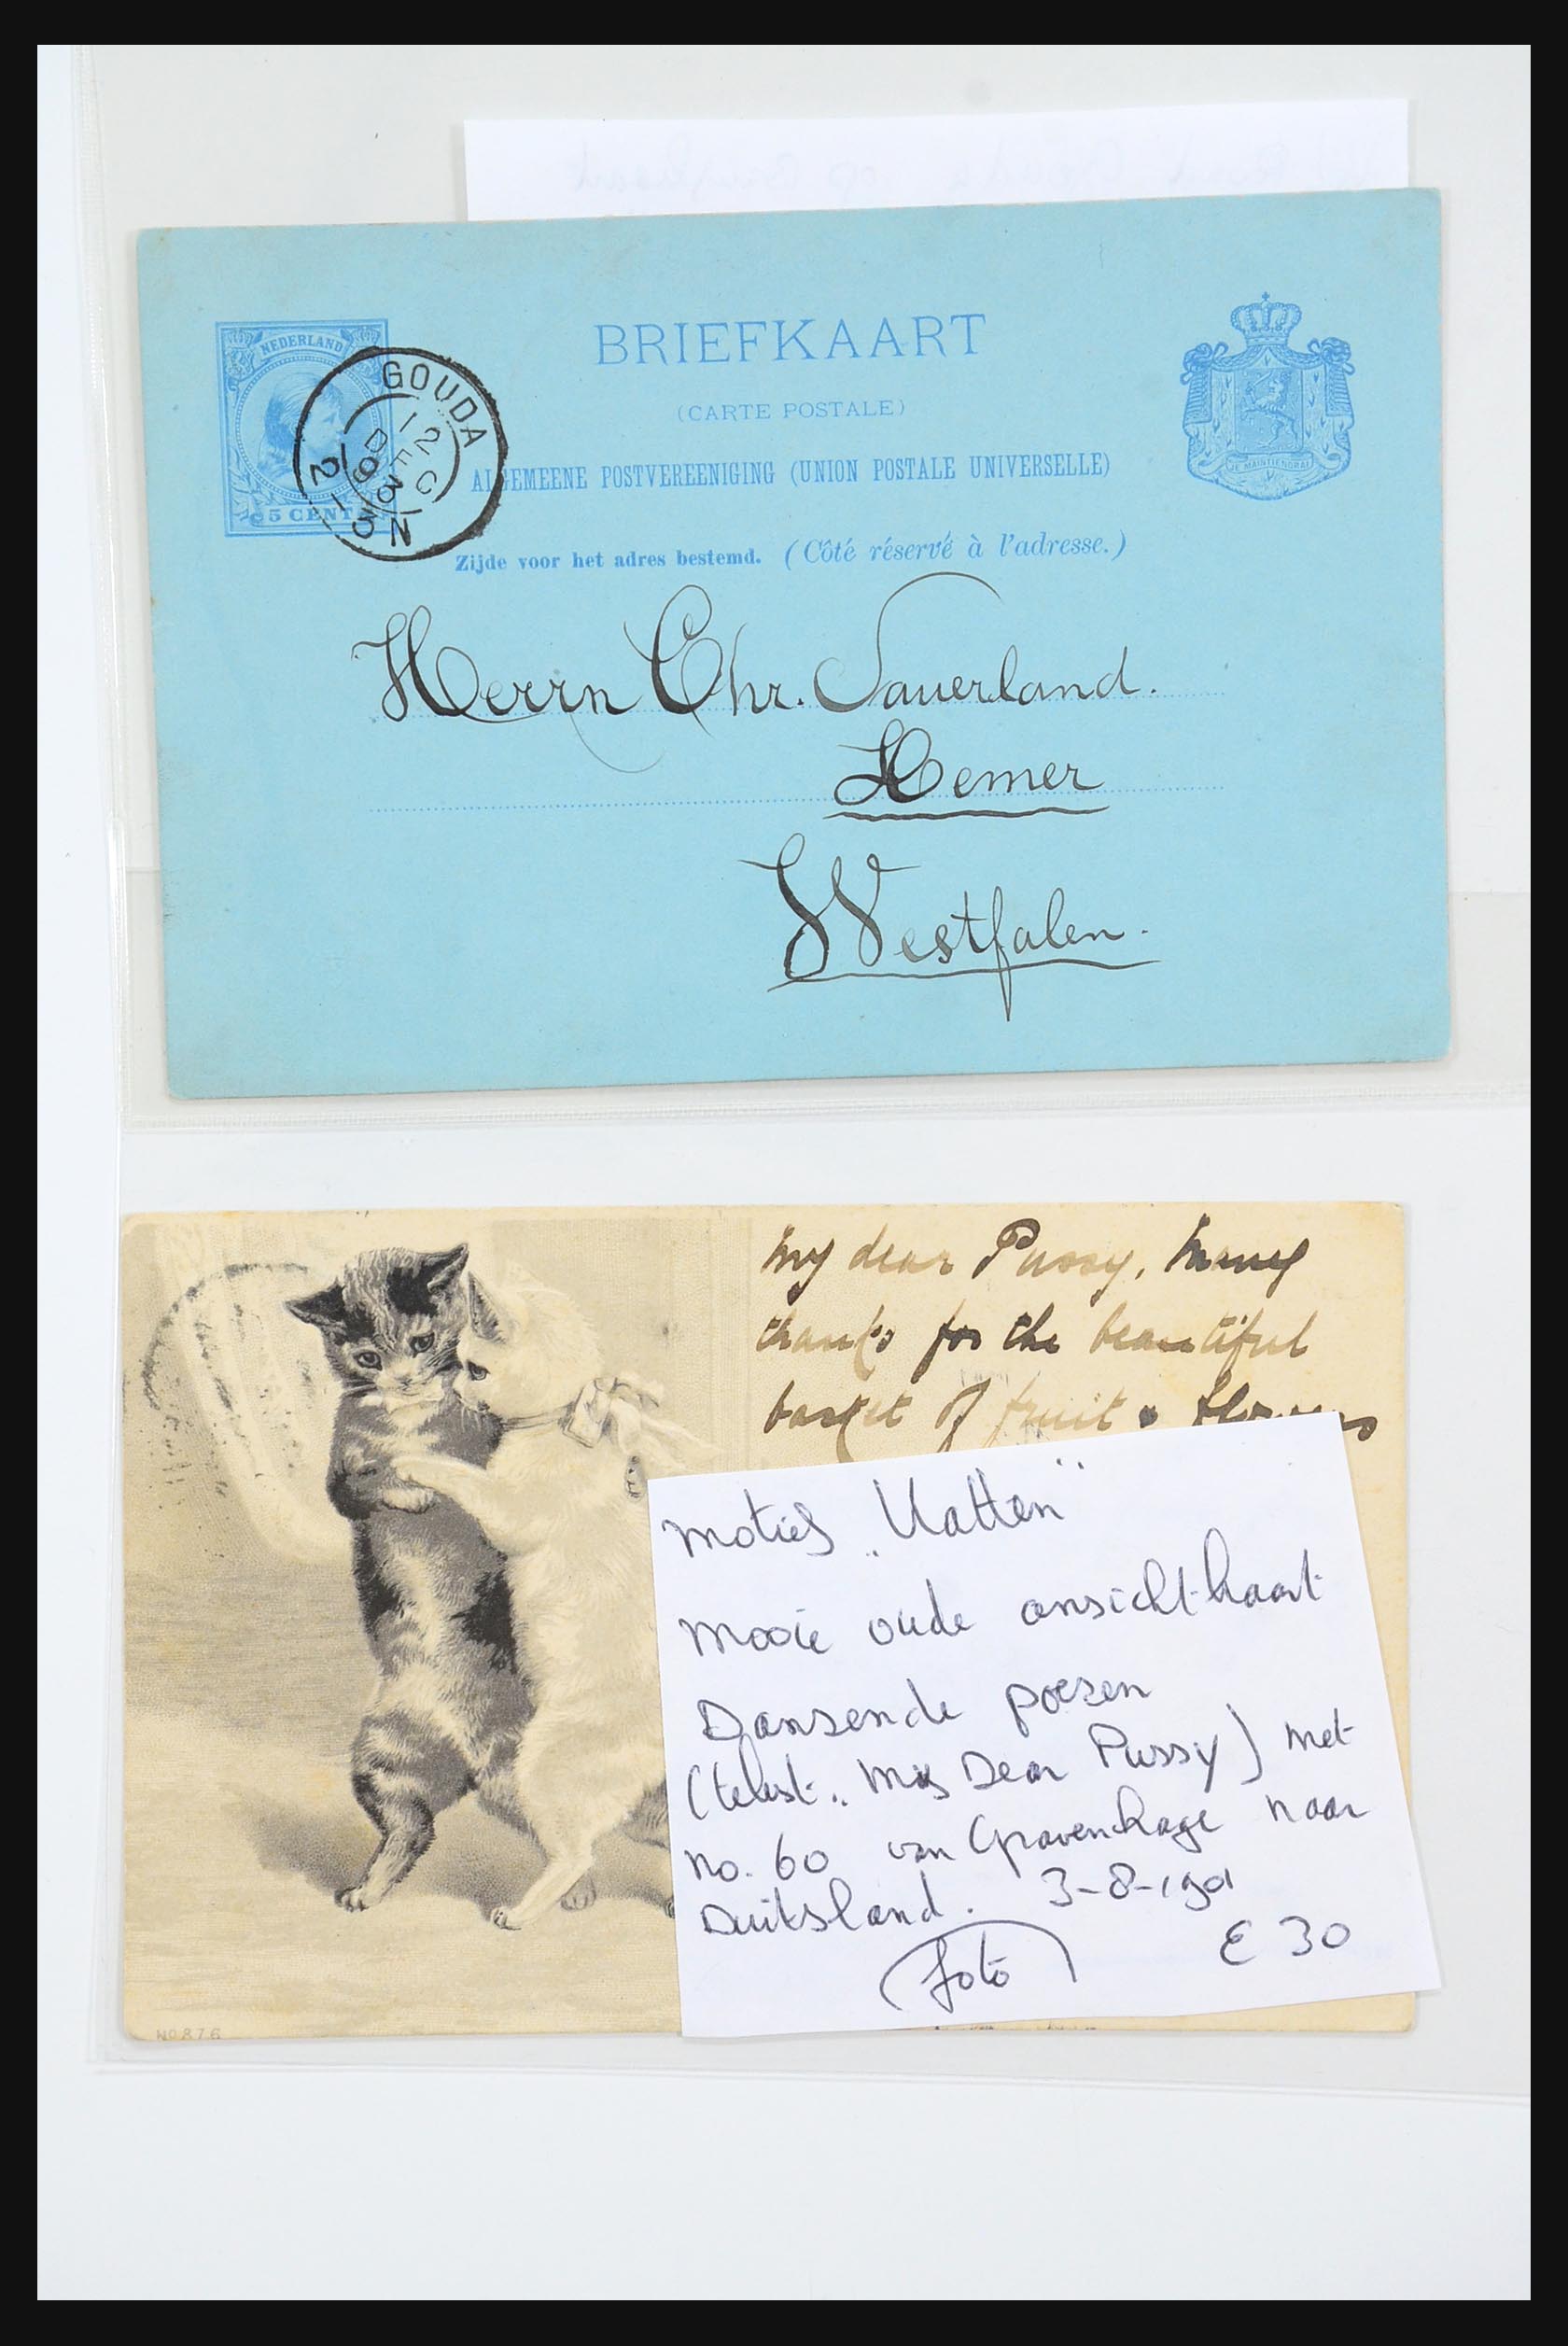 NEDERLAND
5 CENT
GOUDA
12 DEC 93
2-3 N
BRIEFKAART
(CARTE POSTALE)
ALGEMEENE POSTVEREENIGING (UNION POSTALE UNIVERSELLE)
Zijde voor het adres bestemd. (Côté réservé à l'adresse.)
JE MAINTIENDRAI
Herrn Chr. Sauerland.
Hemer
Westfalen.
My dear Pussy, many
thanks for the beautiful
basket of fruit & flowers
motief „Katten"
mooie oude ansichtkaart
Dansende poesen
(tekst „ My Dear Pussy) met
no. 60 van Gravenhage naar
Duitsland. 3-8-1901
foto € 30
No 876